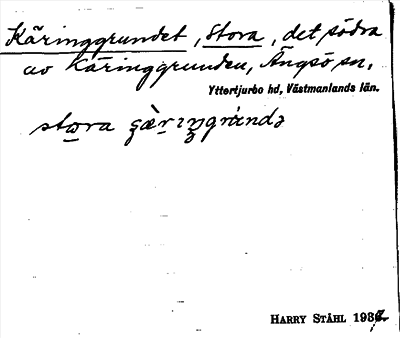 Käringgrundet, Stora, det södra
av Käringgrunden, Ängsö sn,
Yttertjurbo hd, Västmanlands län.
stora
HARRY STÅHL 193